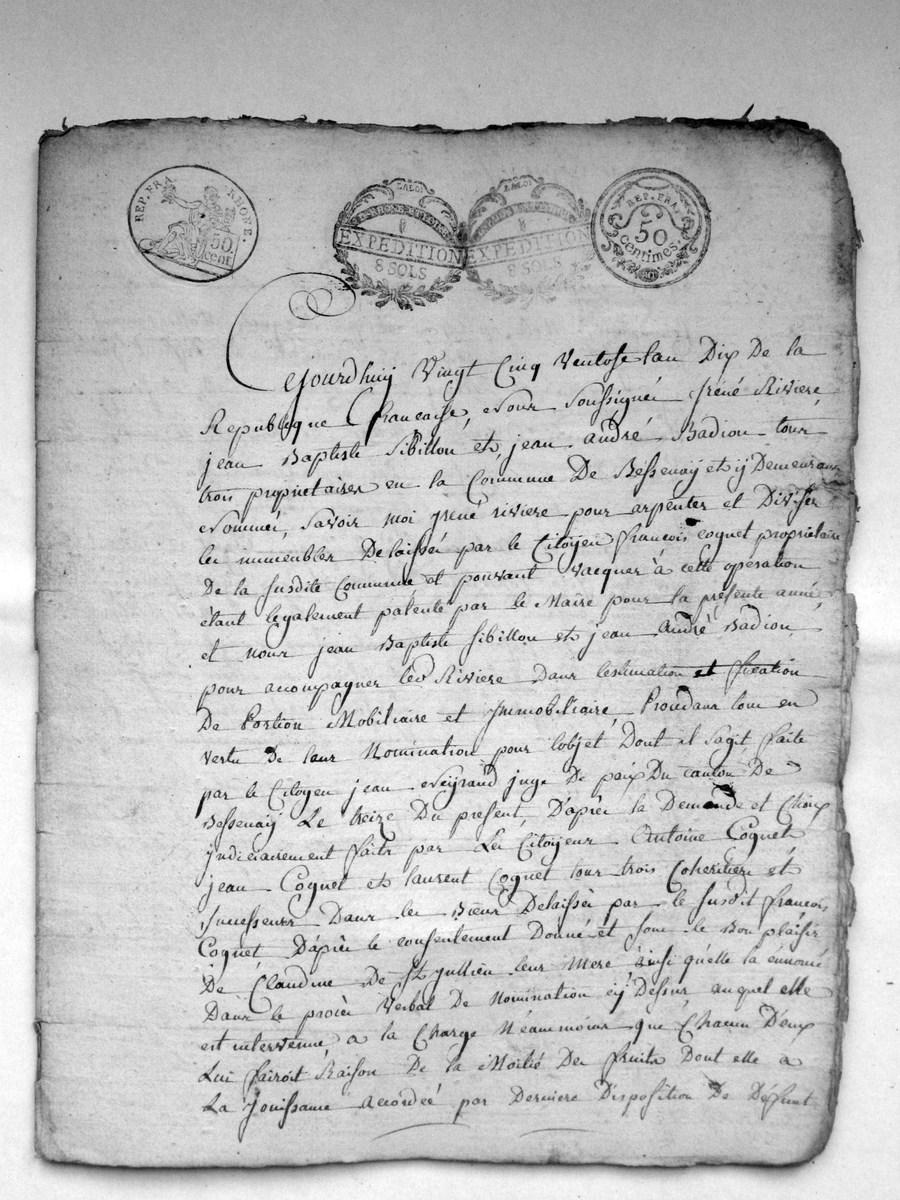 REP. FRA. RHONE.
50
cent.
EXPEDITION
8 SOLS
EXPEDITION
8 SOLS
REP. FRA.
50
centimes.
Cejourdhuy Vingt Cinq Ventose lan Dix De la
Republique francaise, Nous Soussignés iréné Riviere
jean Baptiste Sibillon et jean andré Badion tous
trois proprietaires en la Commune De Bessenay et ÿ Demeurans
Nommés, Savoir moi yréné riviere pour arpenter et Diviser
les immeubles Delaissés par le Citoyen françois coquet propriétaire
De la Susdite Commune et pouvant vacquer à cette opération
étant legalement patenté par le Maire pour la présente année
et nous jean Baptiste Sibillon et jean andré Badion
pour acompagner led Riviere dans lestimation et fixation
De Portion Mobiliaire et Immobiliaire Procédans tous en
vertu de leur Nomination pour lobjet Dont il Sagit faite
par le Citoyen jean Neyrand juge De paix Du canton De
Bessenay Le treize Du present, D'après la Demande et Choix
judiciairement faits par Les Citoyens Antoine Coquet
jean Coquet et laurent Coquet tous trois Coheritiers et
Successeurs Dans les Biens Delaissés par le Susdit françois
Coquet D'après le consentement Donné et Sous le Bon plaisir
De Claudine De St jullien leur mere ainsi quelle la énnoncé
Dans le procès Verbal De Nomination cy Dessus auquel elle
est intervenue a la Charge Néammoins que Chacun D'eux
Lui fairoit Raison De la Moitié Des fruits Dont elle a
La Jouissance accordée par Derniere Disposition De Défunt